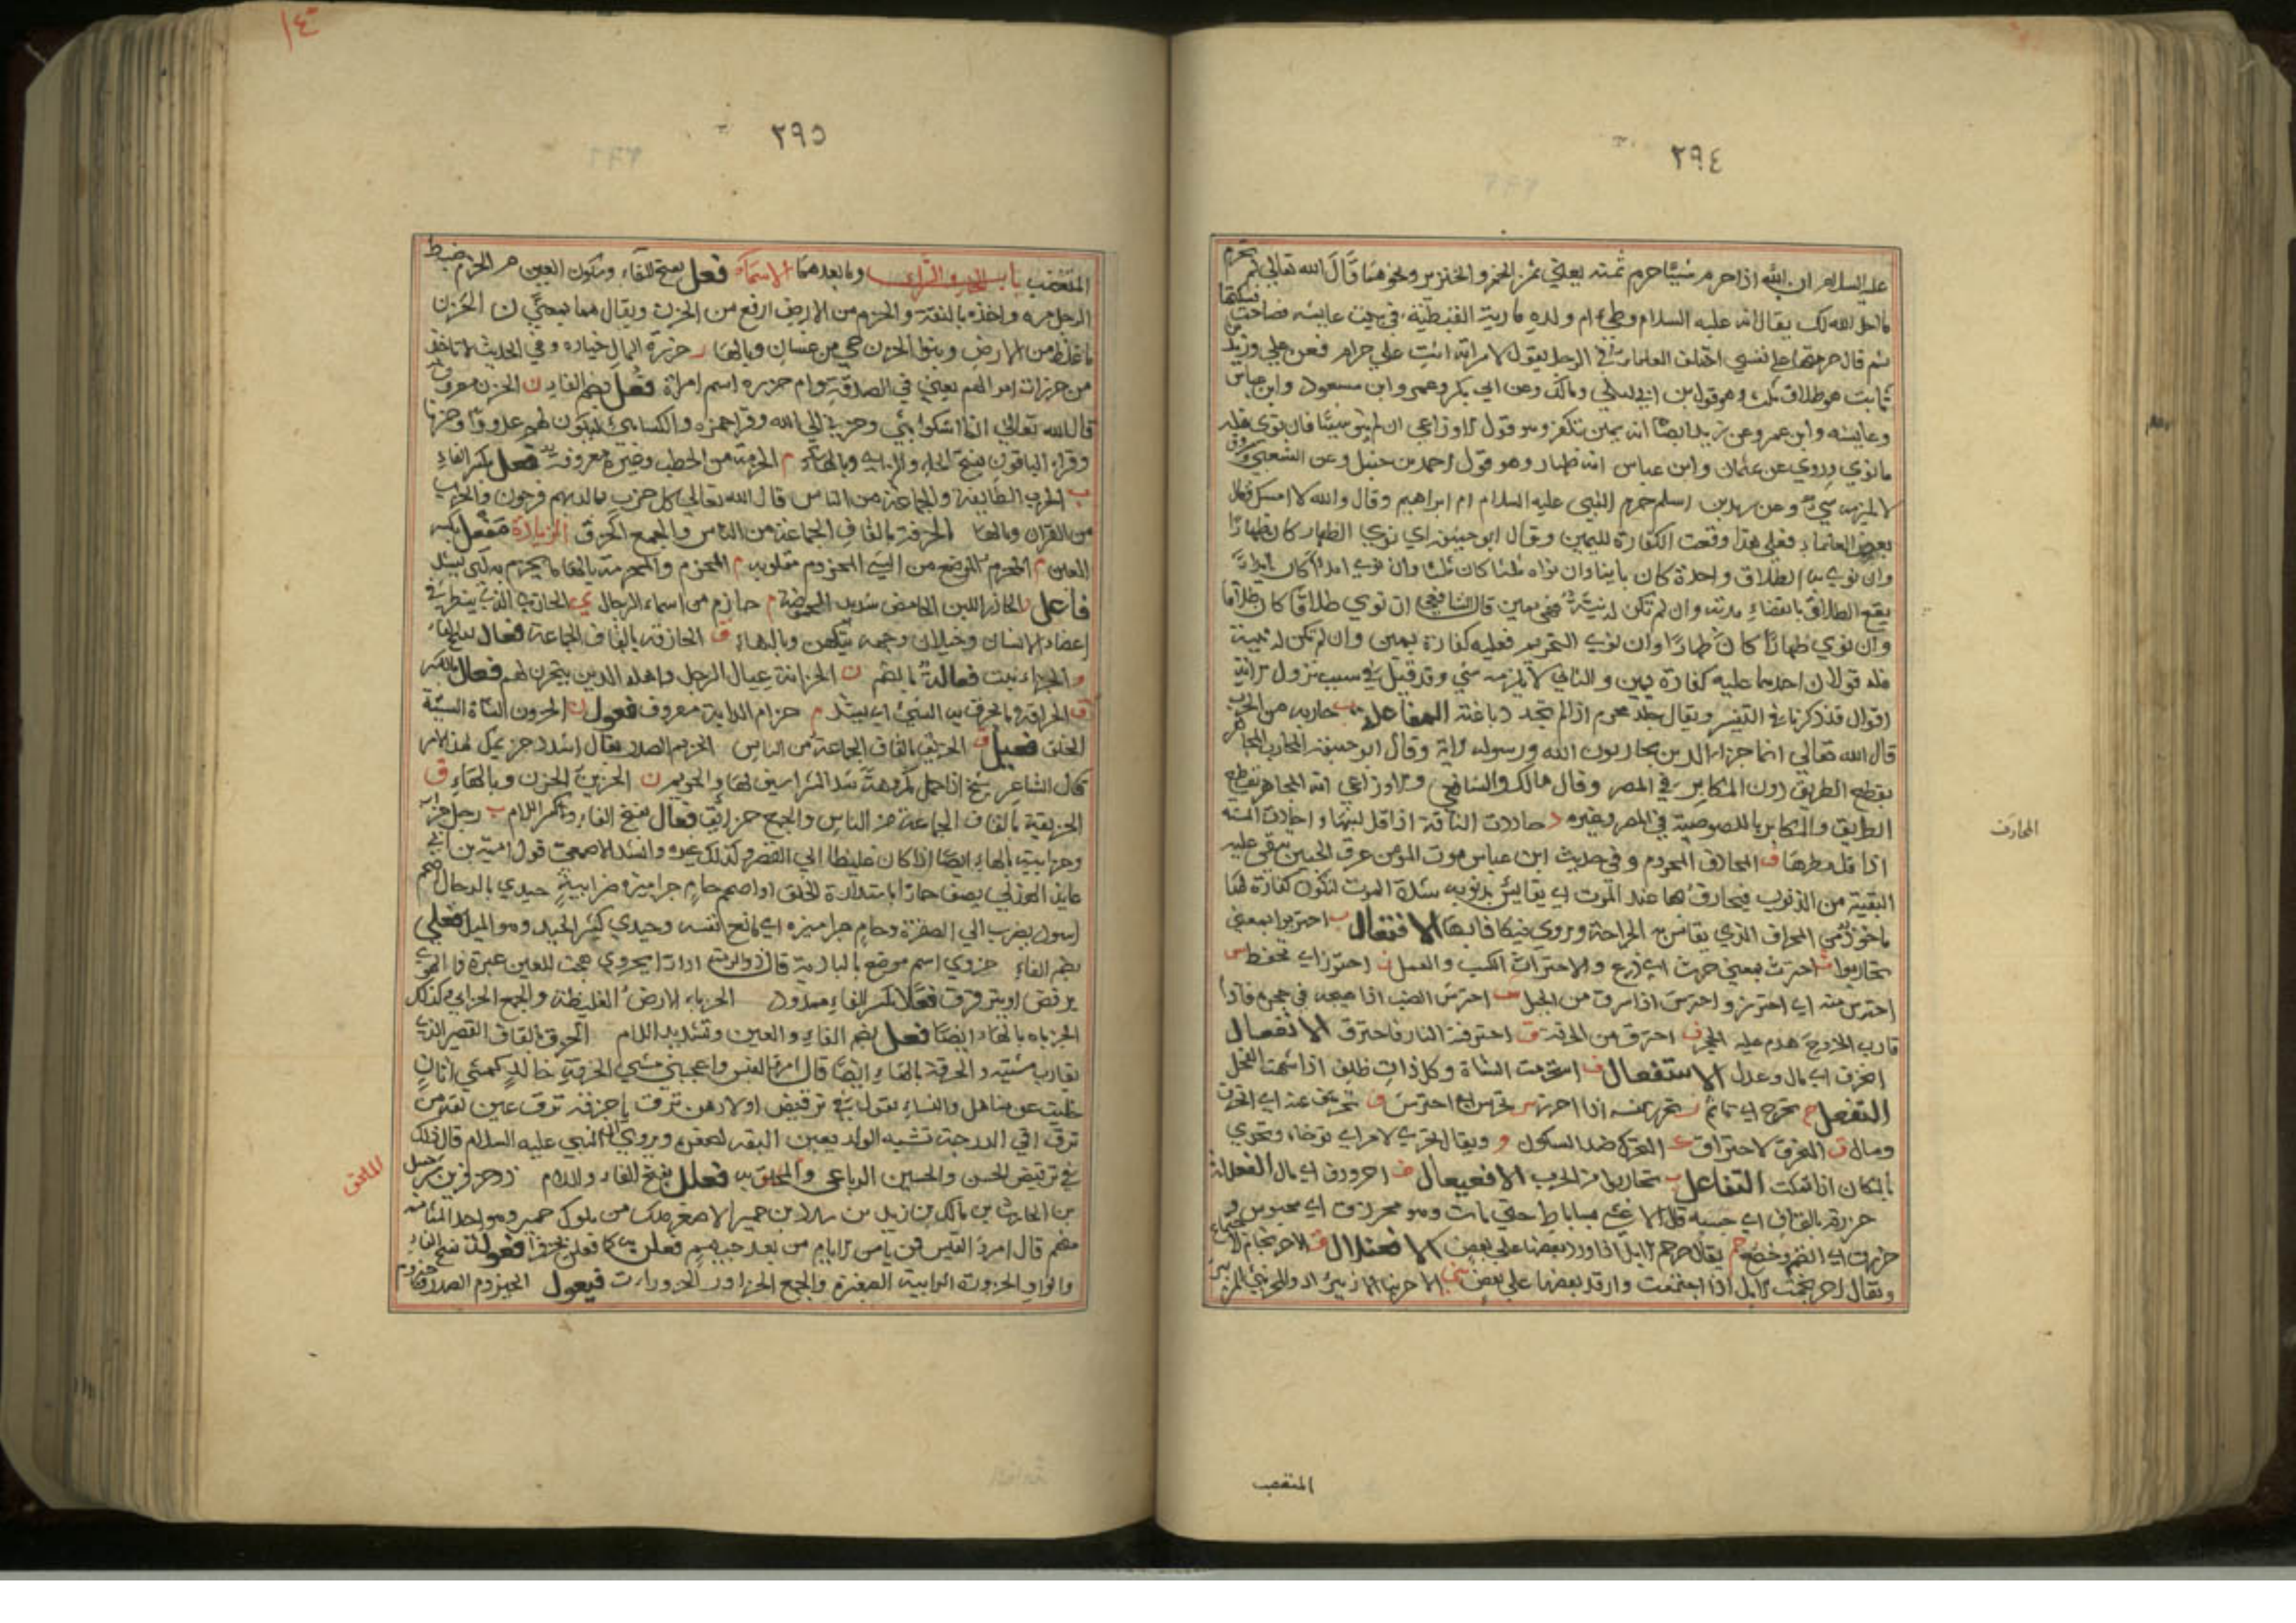 ٢٩٤
عليه السلام ان الله اذا حرم شيئا حرم ثمنه يعني ثمن الخمر والخنزير ونحوهما قال الله تعالى لم تحرم
ما احل الله لك يقال انه عليه السلام وطئ ام ولده مارية القبطية في بيت عايشه
ثم قال حرمتها على نفسي اختلف العلماء في الرجل يقول لامراته انت علي حرام فعن علي وزيد بن
ثابت هو طلاق ثلث وهو قول ابن ابي ليلى ومالك وعن ابي بكر وعمر وابن مسعود وابن عباس
وعايشه وابن عمر وعن زيد ايضا انه يمين تكفر وهو قول الاوزاعي ان لم ينو شيئا فان نوى فله
ما نوى وروي عن عثمان وابن عباس انه ظهار وهو قول احمد بن حنبل وعن الشعبي
لا يلزمه شي وعن زيد بن اسلم حرم النبي عليه السلام ام ابراهيم وقال والله لا امسك فقال
بعض العلماء فعلى هذا وقعت الكفارة لليمين وقال ابو حنيفة اي نوى الظهار كان ظهارا
وان نوى بها الطلاق واحدة كان باينا وان نواه ثلثا كان ثلثا وان نوى
يقع الطلاق بانقضاء مدته وان لم تكن له نية فهي يمين قال الشافعي ان نوى طلاقا كان طلاقا
وان نوى ظهارا كان ظهارا وان نوى التحريم فعليه كفارة يمين وان لم تكن له نية
فله قولان احدهما عليه كفارة يمين والثاني لا يلزمه شي وقد قيل في سبب نزول الاية
اقوال قد ذكرناها في التفسير ويقال جلد محرم اذا لم تجد دباغته المفاعلة ب حاربه من الحرب
قال الله تعالى انما جزاء الذين يحاربون الله ورسوله الاية وقال ابو حنيفة المحارب المجاهر
بقطع الطريق دون المكابر في المصر وقال مالك والشافعي والاوزاعي انه المجاهر بقطع
الطريق والمكابر باللصوصية في المصر وغيره د حاردت الناقة اذا قل لبنها وحاردت السنة
اذا قل مطرها ف المحارف المحروم وفي حديث ابن عباس موت المؤمن عرق الجبين يبقى عليه
البقية من الذنوب فيحارف بها عند الموت اي يقايس بذنوبه شدة الموت لتكون كفارة لها
ماخوذ من المحراف الذي تقاس به الجراحة ويروى فيكافا بها الافتعال ب احتربوا بمعنى
تحاربوا ث احترث بمعنى حرث اي زرع والاحتراث الكسب والعمل ز احترز اي تحفظ س
احترس منه اي احترز واحترس اذا سرق من الجبل ش احترش الضب اذا هيجه في جحره فاذا
قارب الخروج هدم عليه الجحر ف احترف من الحرفة ق احرقته النار فاحترق الانفعال
انحرف اي مال وعدل الاستفعال م استحرمت الشاة وكل ذات ظلف اذا اشتهت الفحل
التفعل ج تحرج اي تاثم ز تحرز بمعنى اذا احترز س تحرس اي احترس ف تحرف عنه اي انحرف
ومال ق التحرق الاحتراق ك التحرك ضد السكون و ويقال تحرى الامر اي توخاه وتحرى
بالمكان اذا تمكث التفاعل ب تحاربوا من الحرب الافعيعال ف احرورف اي مال الفعللة
حرزقه بالقاف اي حبسه قال الاعشى بساباط حتى مات وهو محرزق اي محبوس
حرزق اي انضم وخضع جم يقال حرجم الابل اذا رد بعضها على بعض الافعنلال
ويقال احرنجمت الابل اذا اجتمعت وارتد بعضها على بعض
المحارف
المتغضب
٢٩٥
المتغضب باب الحاء والزاي وما بعدهما الاسماء فعل بفتح الفاء وسكون العين م الحزم ضبط
الرجل امره واخذه بالثقة والحزم من الارض ارفع من الحزن ويقال هما بمعنى ن الحزن
ما غلظ من الارض وبنو الحزن حي من غسان وبالهاء ر حزرة المال خياره وفي الحديث لا تاخذ
من حزرات اموالهم يعني في الصدقة وام حزرة اسم امراة فعل بضم الفاء ن الحزن معروف
قال الله تعالى انما اشكوا بثي وحزني الى الله وقرا حمزه والكسائي ليكون لهم عدوا وحزنا
وقراء الباقون بفتح الحاء والزاي وبالهاء م الحزمة من الحطب وغيره معروفة فعل بكسر الفاء
ب الحزب الطايفة والجماعة من الناس قال الله تعالى كل حزب بما لديهم فرحون والحزب
من القران وبالهاء الحزقة بالقاف الجماعة من الناس والجمع الحزق الزيادة مفعل بكسر
العين م المحزم الموضع من الشي المحزوم مقلوبه م المحزم والمحزمة بالهاء ما يحزم به اي يشد
فاعل ر الحازر اللبن الحامض شديد الحموضة م حازم من اسماء الرجال ي الحازي الذي ينظر في
اعضاء الانسان وخيلان وجهه يتكهن وبالهاء ق الحازقة بالقاف الجماعة فعال بفتح الفاء
و الحزاء نبت فعالة بالضم ن الحزانة عيال الرجل واهله الذين يتحزن لهم فعال بالكسر
ق الحزاق ما يحزق به الشي اي يشد م حزام الدابة معروف فعول ن الحزون الشاة السيئة
الخلق فعيل ق الحزيق بالقاف الجماعة من الناس الحزيم الصدر يقال اشدد حزيمك لهذا الامر
قال الشاعر شيخ اذا حمل مكروهة شد الشراسيف لها والحزيم ن الحزين الحزن وبالهاء ق
الحزيقة بالقاف الجماعة من الناس والجمع حزائق فعال بفتح الفاء وكسر اللام ب رجل حزاب
وحزابية بالهاء ايضا اذا كان غليظا الى القصر وكذلك غيره وانشد الاصمعي قول امية بن ابي
عايذ الهذلي يصف حمارا باستدارة الخلق او اصحم حام جراميزه حزابية حيدى بالدحال اصحم
اسود يضرب الى الصفرة وحام جراميزه اي مانع نفسه وحيدى كثير الحيد وهو الميل فعلى
بضم الفاء حزوى اسم موضع بالبادية قال ذو الرمة ادارا بحزوى هجت للعين عبرة فماء الهوى
يرفض او يترقرق فعلاء بكسر الفاء ممدود الحزباء الارض الغليظة والجمع الحزابي وكذلك
الحزباه بالهاء ايضا فعل بضم الفاء والعين وتشديد اللام الحزق بالقاف القصير الذي
يقارب مشيته والحزقة بالهاء ايضا قال امرؤ القيس واعجبني مشي الحزقة خالد كمشي اتان
حليت عن مناهل والنساء تقول في ترقيض اولادهن ترق يا حزقة ترق عين بقه من
ترق اي ارق الدرجة تشبه الولد بعين البقه لصغره ويروى ان النبي عليه السلام قال ذلك
في ترقيص الحسن والحسين الرباعي والملحق به فعلل بفتح الفاء واللام ذو حزفر بن شرحبيل
بن الحارث بن مالك بن زيد بن سدد بن حمير الاصغر ملك من ملوك حمير وهو احد المثامنة
منهم قال امرؤ القيس
والواو الحزورة الرابية الصغيرة والجمع الحزاور والحزورات فيعول الحيزوم الصدر
الملحق